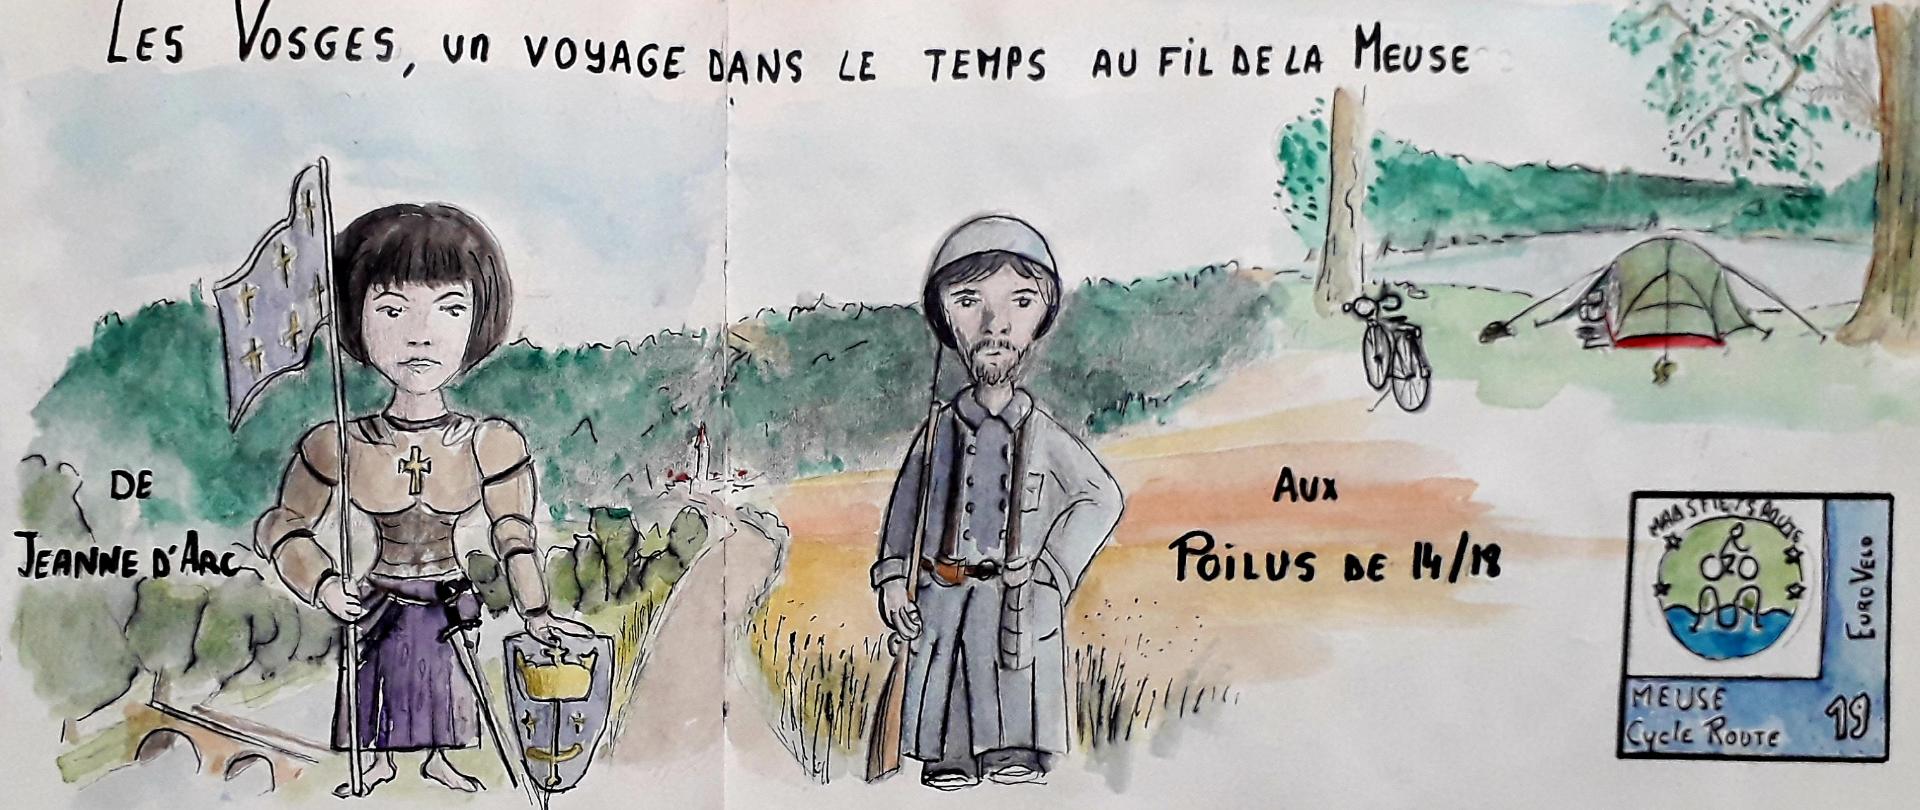 LES VOSGES, UN VOYAGE DANS LE TEMPS AU FIL DE LA MEUSE
DE
JEANNE D'ARC
AUX
POILUS DE 14/18
MAASFIETSROUTE
EURO VELO
MEUSE
Cycle ROUTE
19